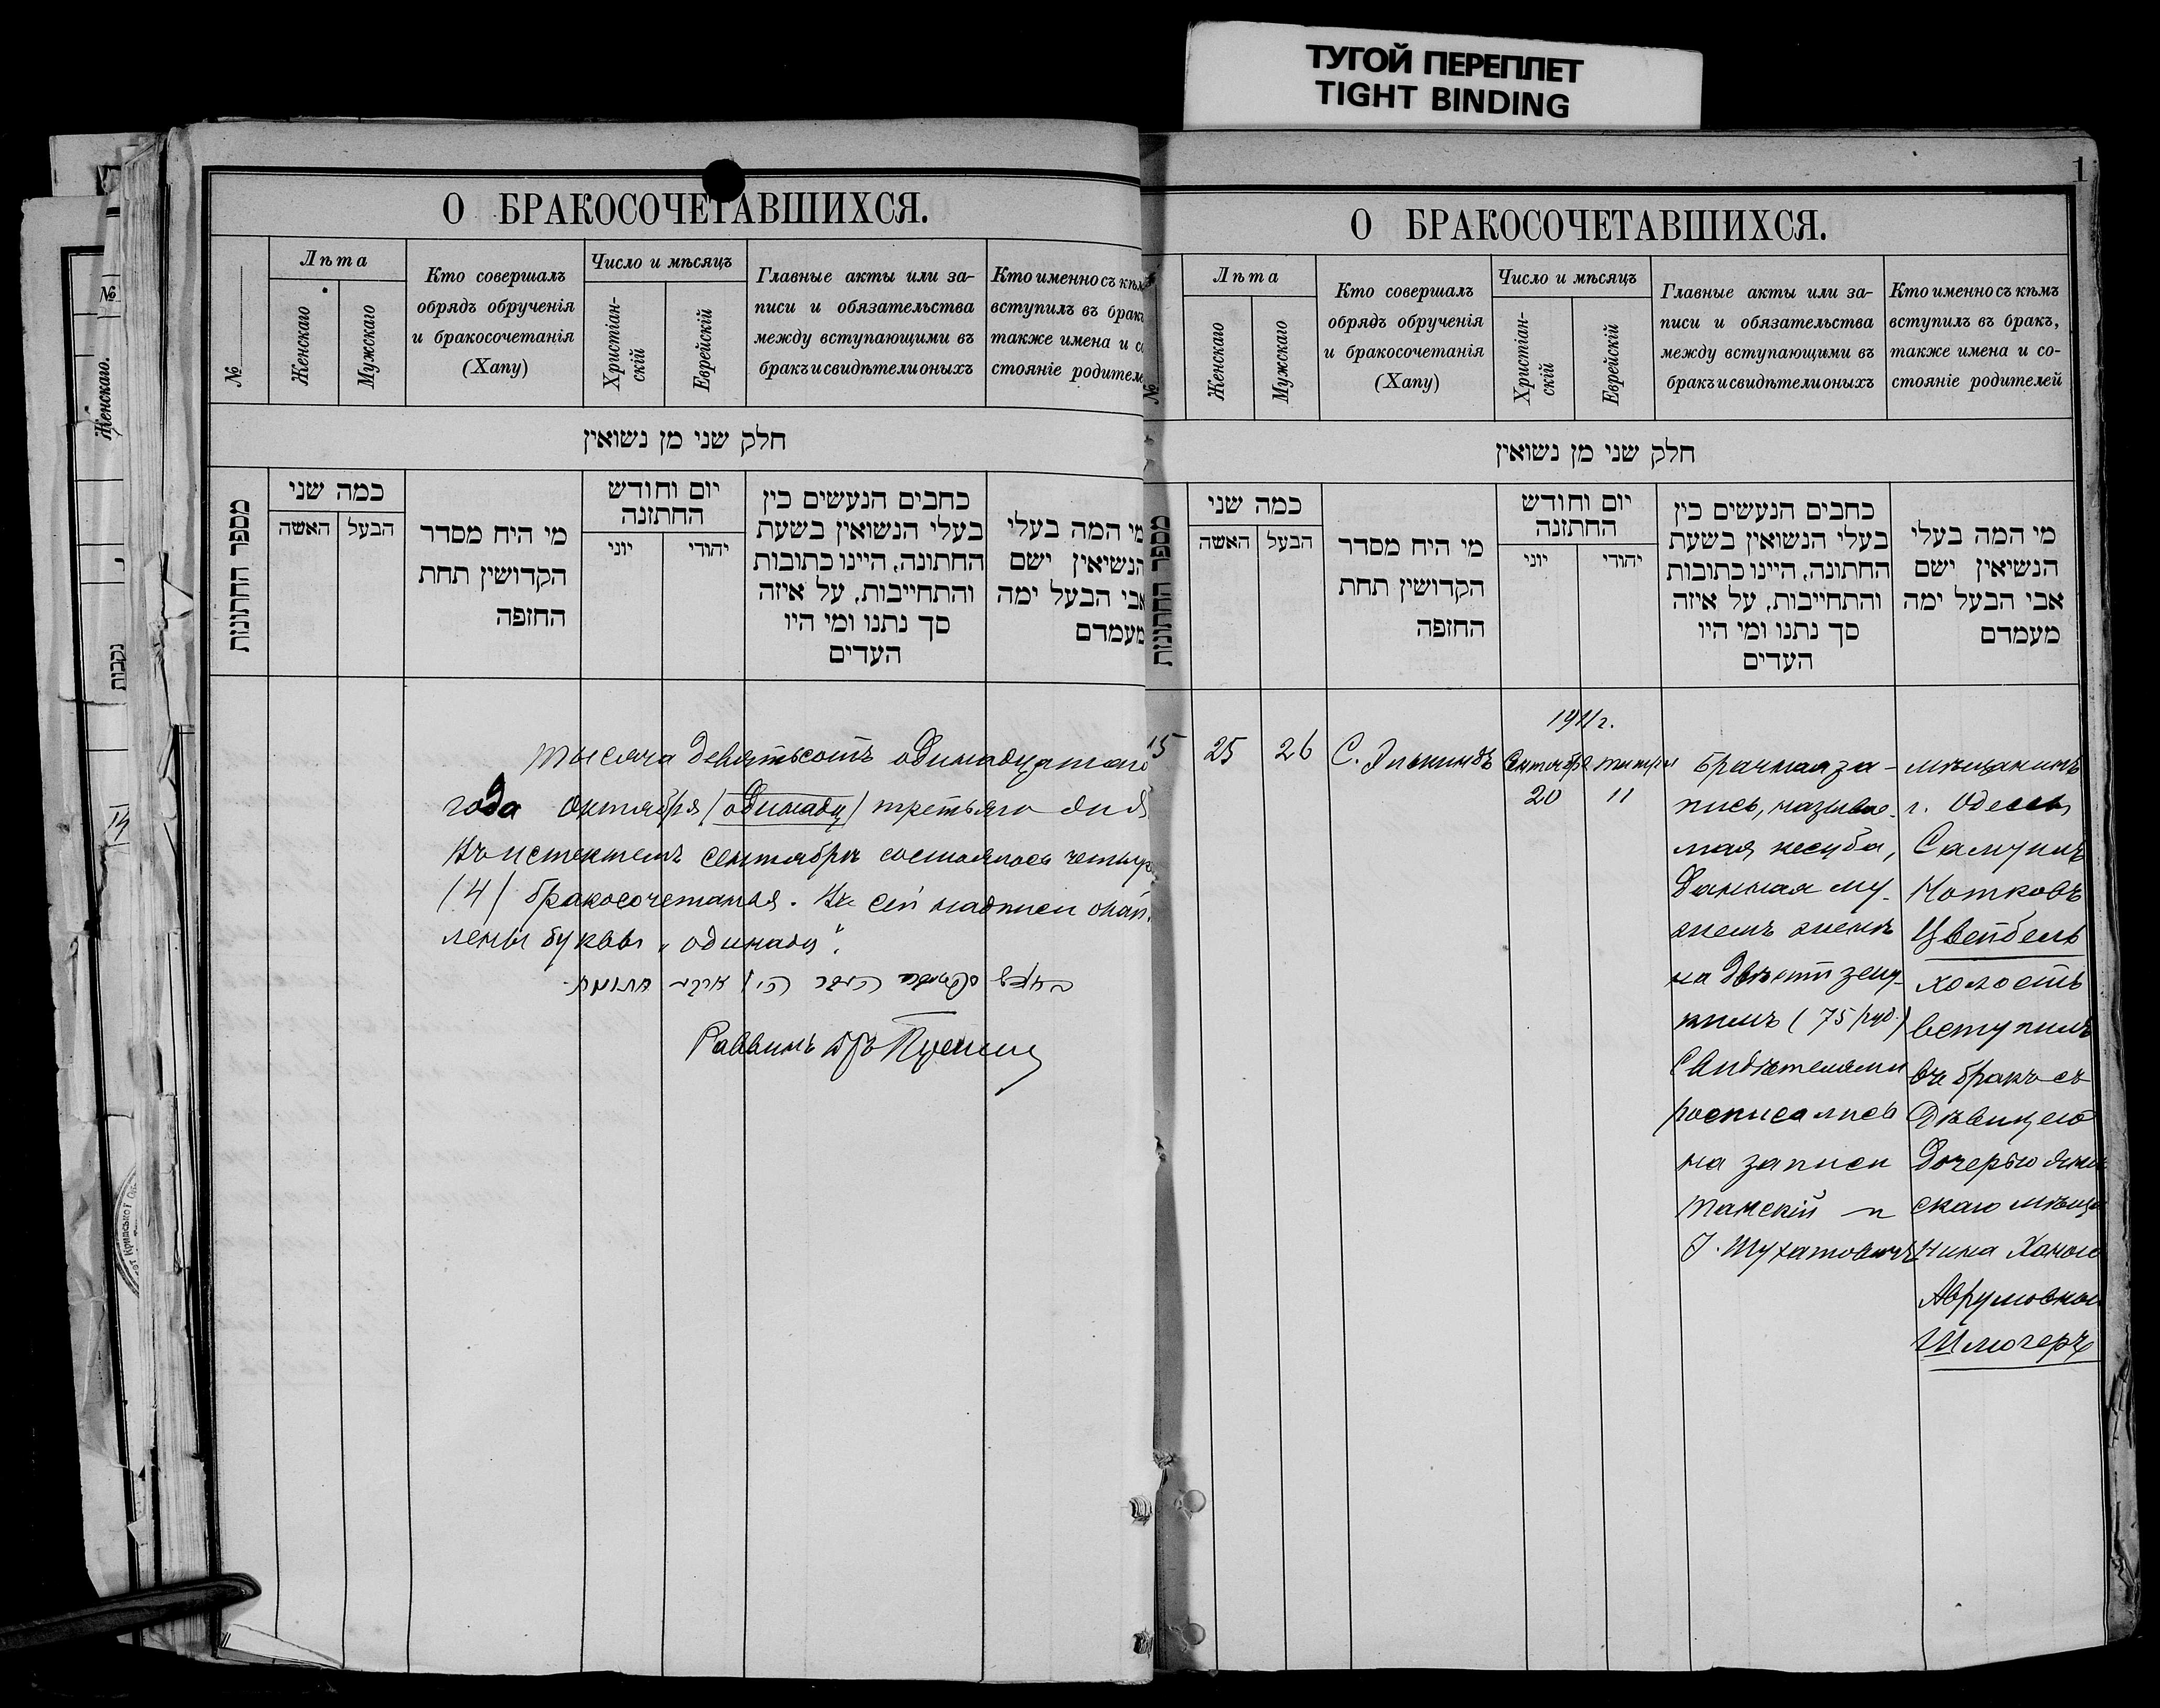 ТУГОЙ ПЕРЕПЛЕТ
TIGHT BINDING
№
Женскаго.
נקבות
О БРАКОСОЧЕТАВШИХСЯ.
№
Лѣта
Женскаго
Мужскаго
Кто совершалъ
обрядъ обрученія
и бракосочетанія
(Хапу)
Число и мѣсяцъ
Христіан-
скій
Еврейскій
Главные акты или за-
писи и обязательства
между вступающими въ
бракъ и свидѣтели оныхъ
Кто именно съ кѣмъ
вступилъ въ бракъ
также имена и со
стояніе родителе
חלק שני מן נשואין
מספר החתונות
כמה שני
האשה
הבעל
מי היח מסדר
הקדושין תחת
החזפה
יום וחודש
החתזנה
יוני
יהודי
כחבים הנעשים כין
בעלי הנשואין בשעת
החתונה, היינו כתובות
והתחייבות, על איזה
סך נתנו ומי היו
העדים
מי המה בעלי
הנשיאין ישם
אבי הבעל ימה
מעמדם
Тысяча девятьсотъ одинадцатаго
года октября (одинадц) третьяго дня
въ истекшемъ сентябрѣ состоялось четыре
(4) бракосочетанія. Въ сей надписи
лены буквы „одинадц“.
Раввинъ
1
О БРАКОСОЧЕТАВШИХСЯ.
№
Лѣта
Женскаго
Мужскаго
Кто совершалъ
обрядъ обрученія
и бракосочетанія
(Хапу)
Число и мѣсяцъ
Христіан-
скій
Еврейскій
Главные акты или за-
писи и обязательства
между вступающими въ
бракъ и свидѣтели оныхъ
Кто именно съ кѣмъ
вступилъ въ бракъ,
также имена и со-
стояніе родителей
חלק שני מן נשואין
מספר החתונות
כמה שני
האשה
הבעל
מי היח מסדר
הקדושין תחת
החזפה
יום וחודש
החתזנה
יוני
יהודי
כחבים הנעשים כין
בעלי הנשואין בשעת
החתונה, היינו כתובות
והתחייבות, על איזה
סך נתנו ומי היו
העדים
מי המה בעלי
הנשיאין ישם
אבי הבעל ימה
מעמדם
15
25
26
С. Элькиндъ
1911 г.
Сентября
20
Тишри
11
Брачная за-
пись, называе-
мая кесуба,
данная му-
жемъ женѣ
на двѣсти зецу-
кимъ (75 руб.)
Свидѣтелями
росписались
на записи
Танскій и
I. Шухатовичъ
мѣщанинъ
г. Одессы
Самуилъ
Нотковъ
Цвейбель
холостъ
вступилъ
въ бракъ съ
дѣвицею
дочерью
скаго мѣща
нина Ханою
Аврумовною
Шлюгеръ